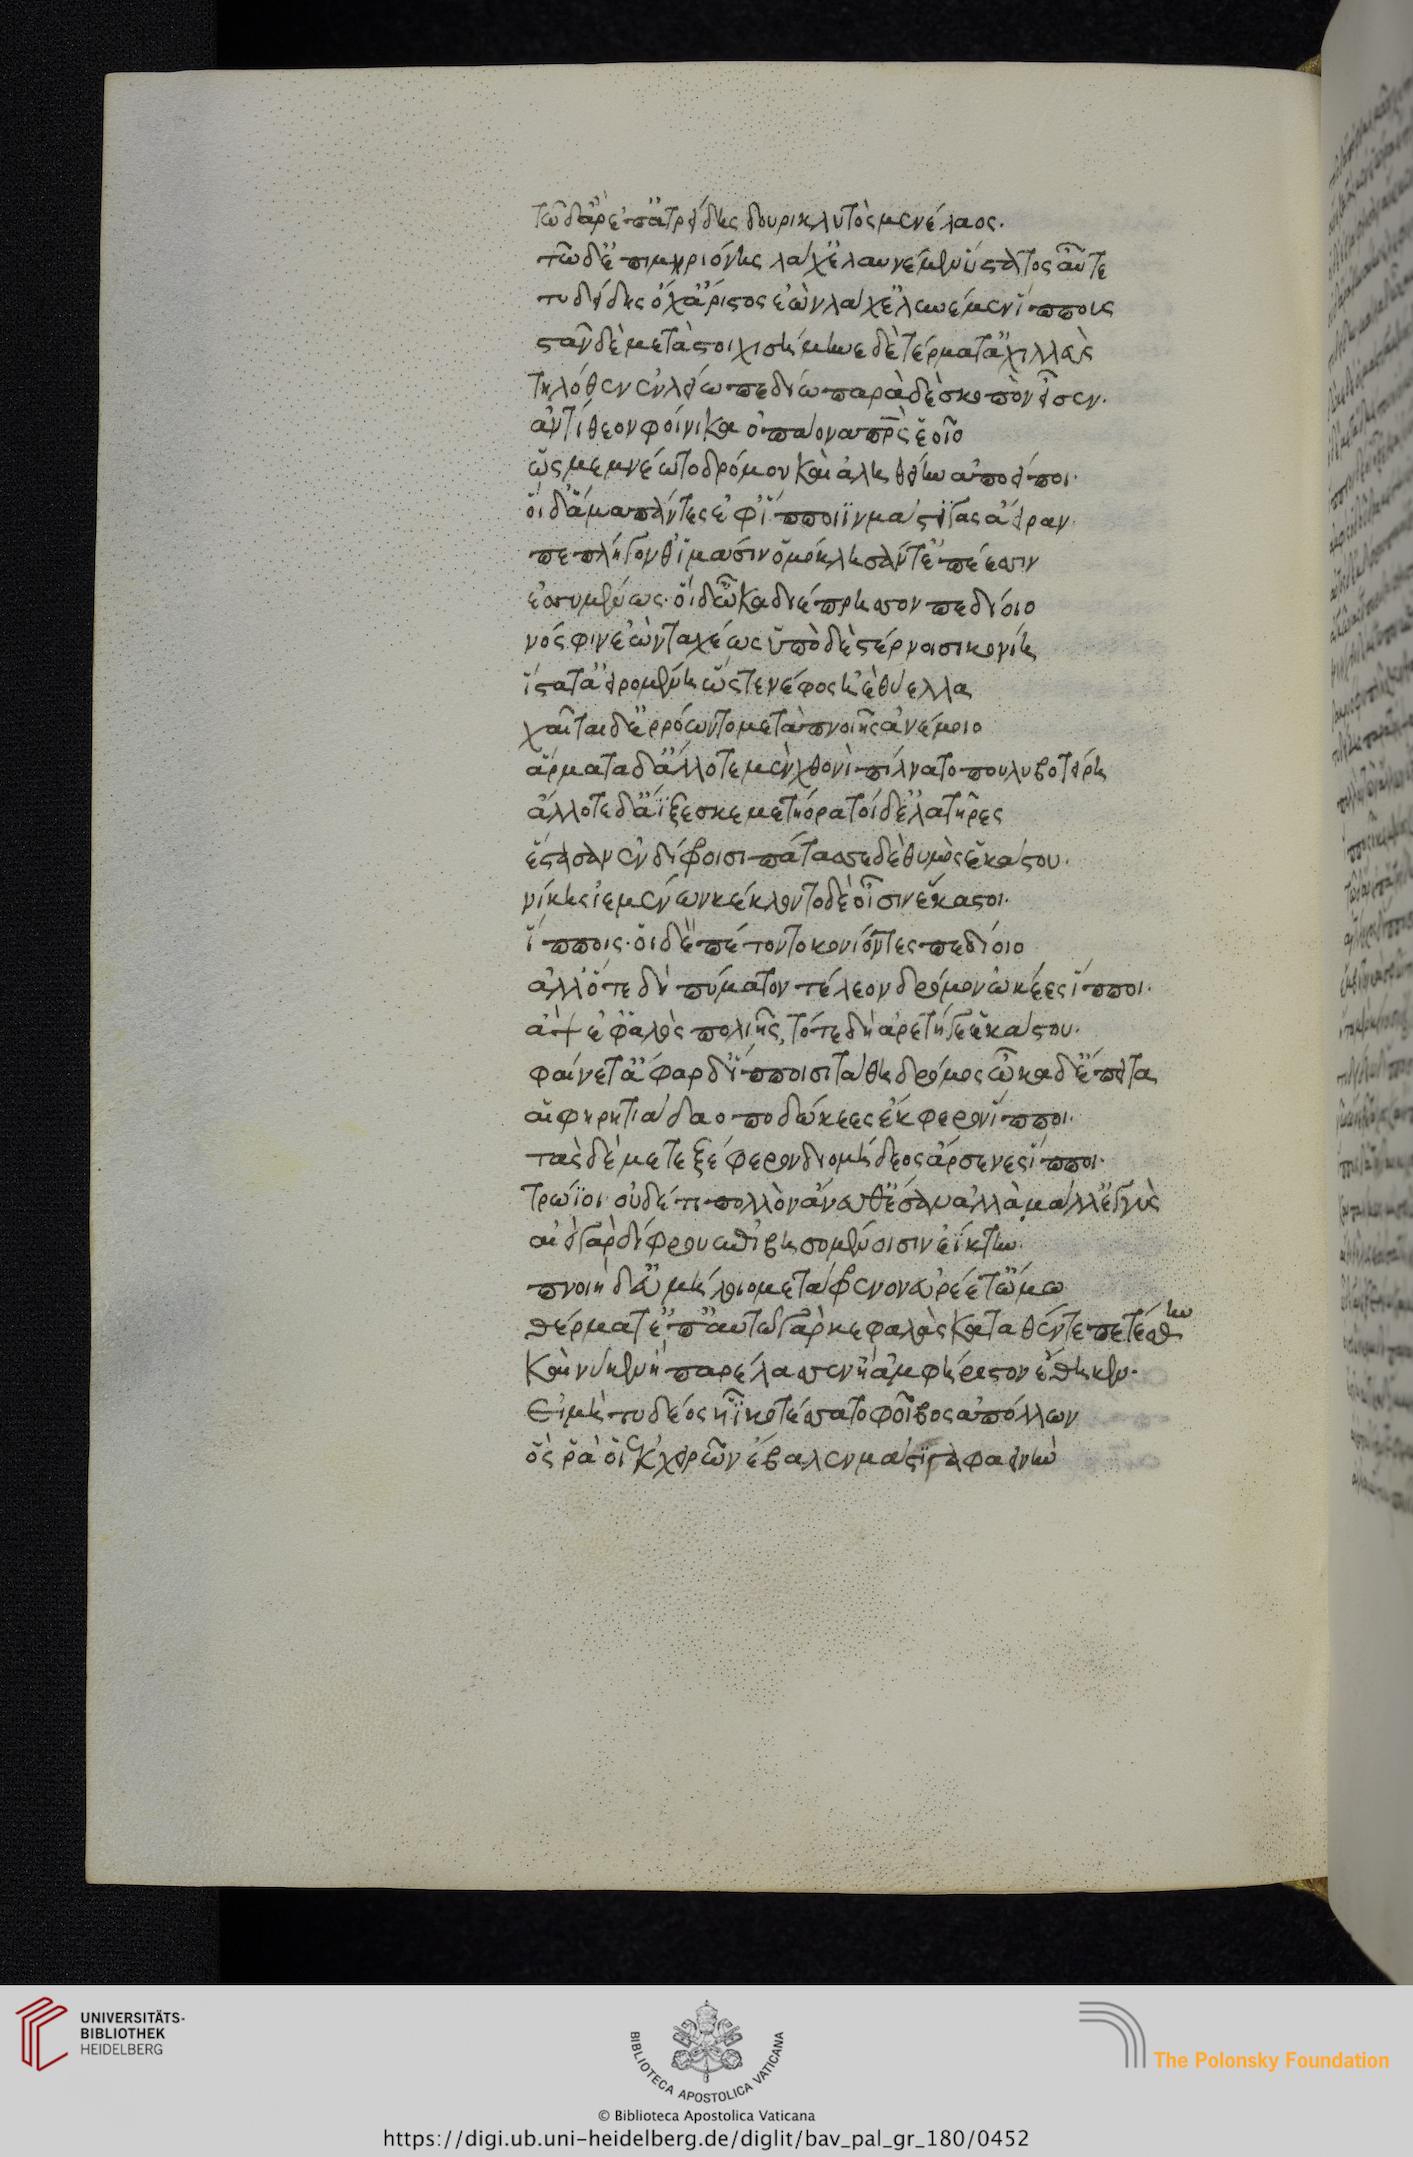 τῶ δ' ἄρ' ἐπ' ἀτρείδης δουρικλυτὸς μενέλαος.
τῶ δ' ἔπι μηριόνης λάχ' ἐλαυνέμεν· ὕστατος αὖτε
τυδείδης ὄχ' ἄριστος ἐὼν λάχ' ἐλαυνέμεν ἵππους
στὰν δὲ μεταστοιχὶ σήμηνε δὲ τέρματ' ἀχιλλεὺς
τηλόθεν ἐν λείω πεδίω παρὰ δὲ σκοπὸν εἷσεν.
ἀντίθεον φοίνικα ὀπάονα πατρὸς ἑοῖο
ὡς μεμνέωτο δρόμου καὶ ἀληθείην ἀποείποι.
οἱ δ' ἅμα πάντες ἐφ' ἵπποιϊν μάστιγας ἄειραν.
πέπληγον θ' ἱμᾶσιν ὁμόκλησάν τ' ἐπέεσσιν
ἐσσυμένως. οἱ δ' ὦκα διέπρησσον πεδίοιο
νόσφι νεῶν ταχέως ὑπὸ δὲ στέρνοισι κονίη
ἵστατ' ἀειρομένη ὥστε νέφος ἠὲ θύελλα
χαῖται δ' ἐρρώοντο μετὰ πνοιῆς ἀνέμοιο
ἅρματα δ' ἄλλοτε μὲν χθονὶ πίλνατο πουλυβοτείρη
ἄλλοτε δ' ἀΐξεσκε μετήορα τοὶ δ' ἐλατῆρες
ἕστασαν ἐν δίφροισι πάτασσε δὲ θυμὸς ἑκάστου.
νίκης ἱεμένων κέκλοντο δὲ οἷσιν ἕκαστοι.
ἵπποις. οἱ δ' ἐπέτοντο κονίοντες πεδίοιο
ἀλλ' ὅτε δὴ πύματον τέλεον δρόμον ὠκέες ἵπποι.
ἂψ ἐφ' ἁλὸς πολιῆς, τότε δὴ ἀρετή γε ἑκάστου.
φαίνετ' ἄφαρ δ' ἵπποισι τάθη δρόμος ὦκα δ' ἔπειτα
αἱ φηρητιάδαο ποδώκεες ἔκφερον ἵπποι.
τὰς δὲ μετ' ἐξέφερον διομήδεος ἄρσενες ἵπποι.
τρώϊοι οὐδέ τι πολλὸν ἄνευθ' ἔσαν ἀλλὰ μάλ' ἐγγὺς
αἰεὶ γὰρ δίφρου ἐπιβησομένοισιν ἐΐκτην.
πνοιῆ δ' εὐμήλοιο μετάφρενον εὐρέε τ' ὤμω
θέρμετ' ἐπ' αὐτῶ γὰρ κεφαλὰς καταθέντε πετέσθην
καὶ νύ κεν ἢ παρέλασσεν ἢ ἀμφήριστον ἔθηκεν.
εἰ μὴ τυδέος υἷϊ κοτέσσατο φοῖβος ἀπόλλων
ὅς ῥά οἱ ἐκ χειρῶν ἔβαλεν μάστιγα φαεινὴν
UNIVERSITÄTS-
BIBLIOTHEK
HEIDELBERG
BIBLIOTECA APOSTOLICA VATICANA
The Polonsky Foundation
© Biblioteca Apostolica Vaticana
https://digi.ub.uni-heidelberg.de/diglit/bav_pal_gr_180/0452